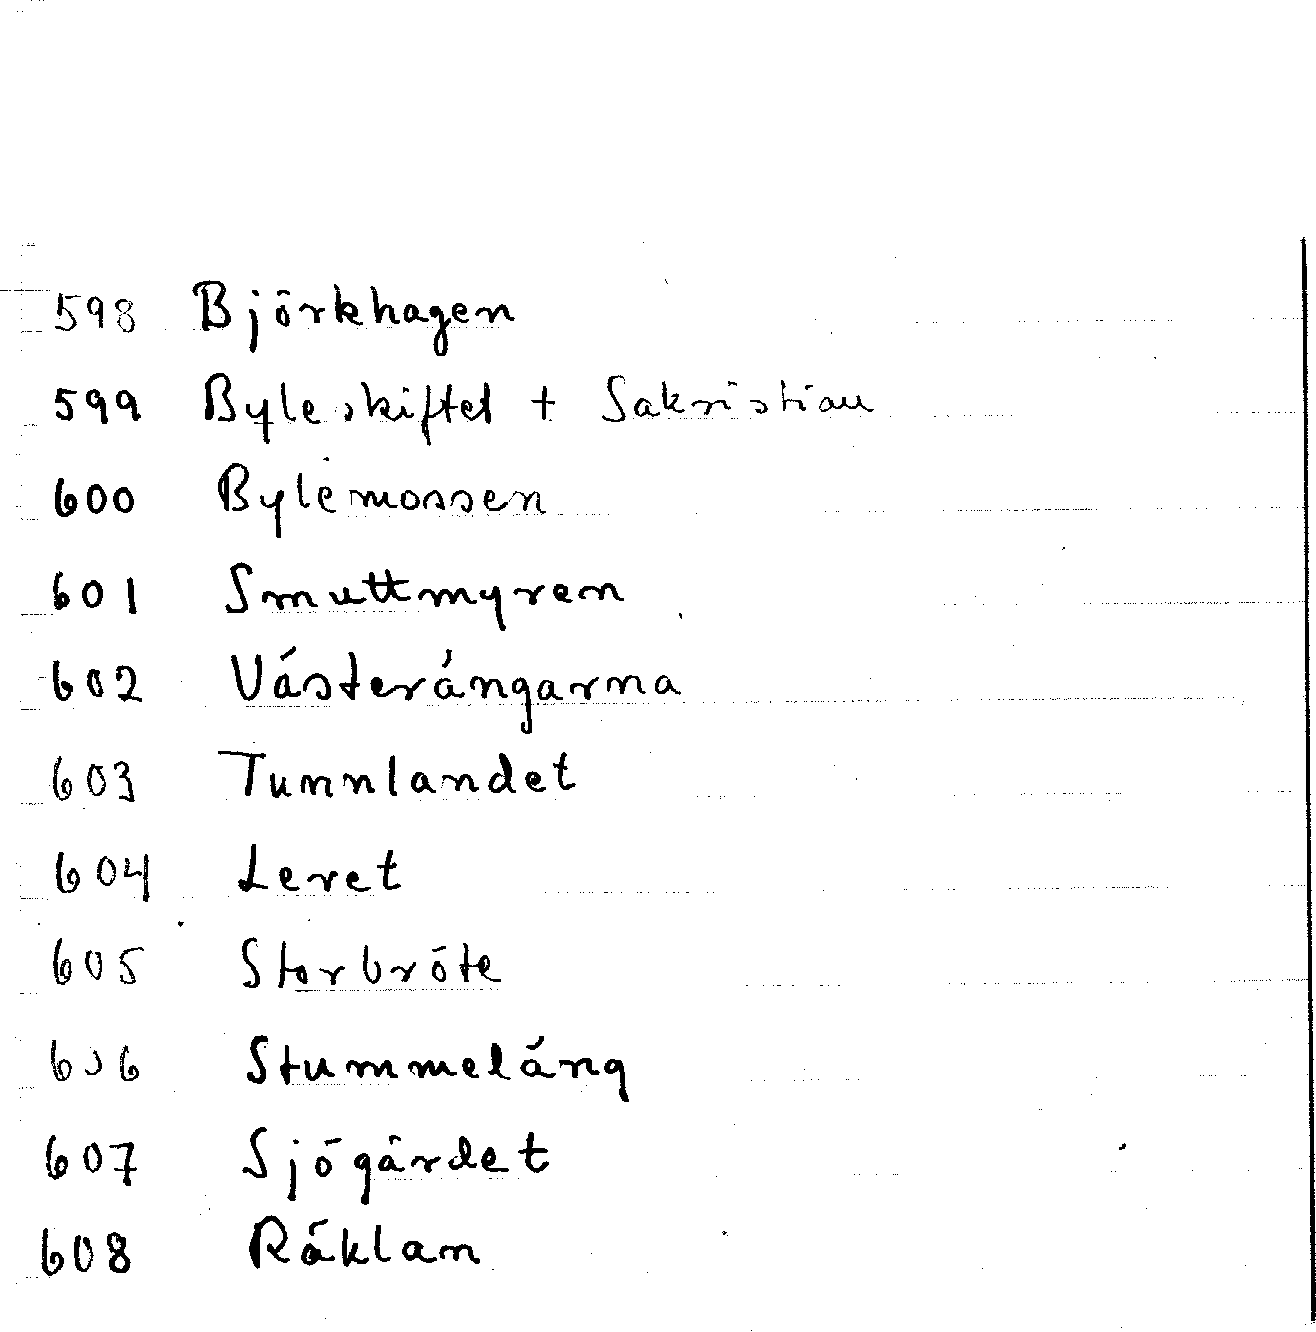 598 Björkhagen
599 Byleskiftet + Sakristian
600 Bylemossen
601 Smuttmyren
602 Västerängarna
603 Tunnlandet
604 Leret
605 Storbröte
606 Stummeläng
607 Sjögärdet
608 Räklan